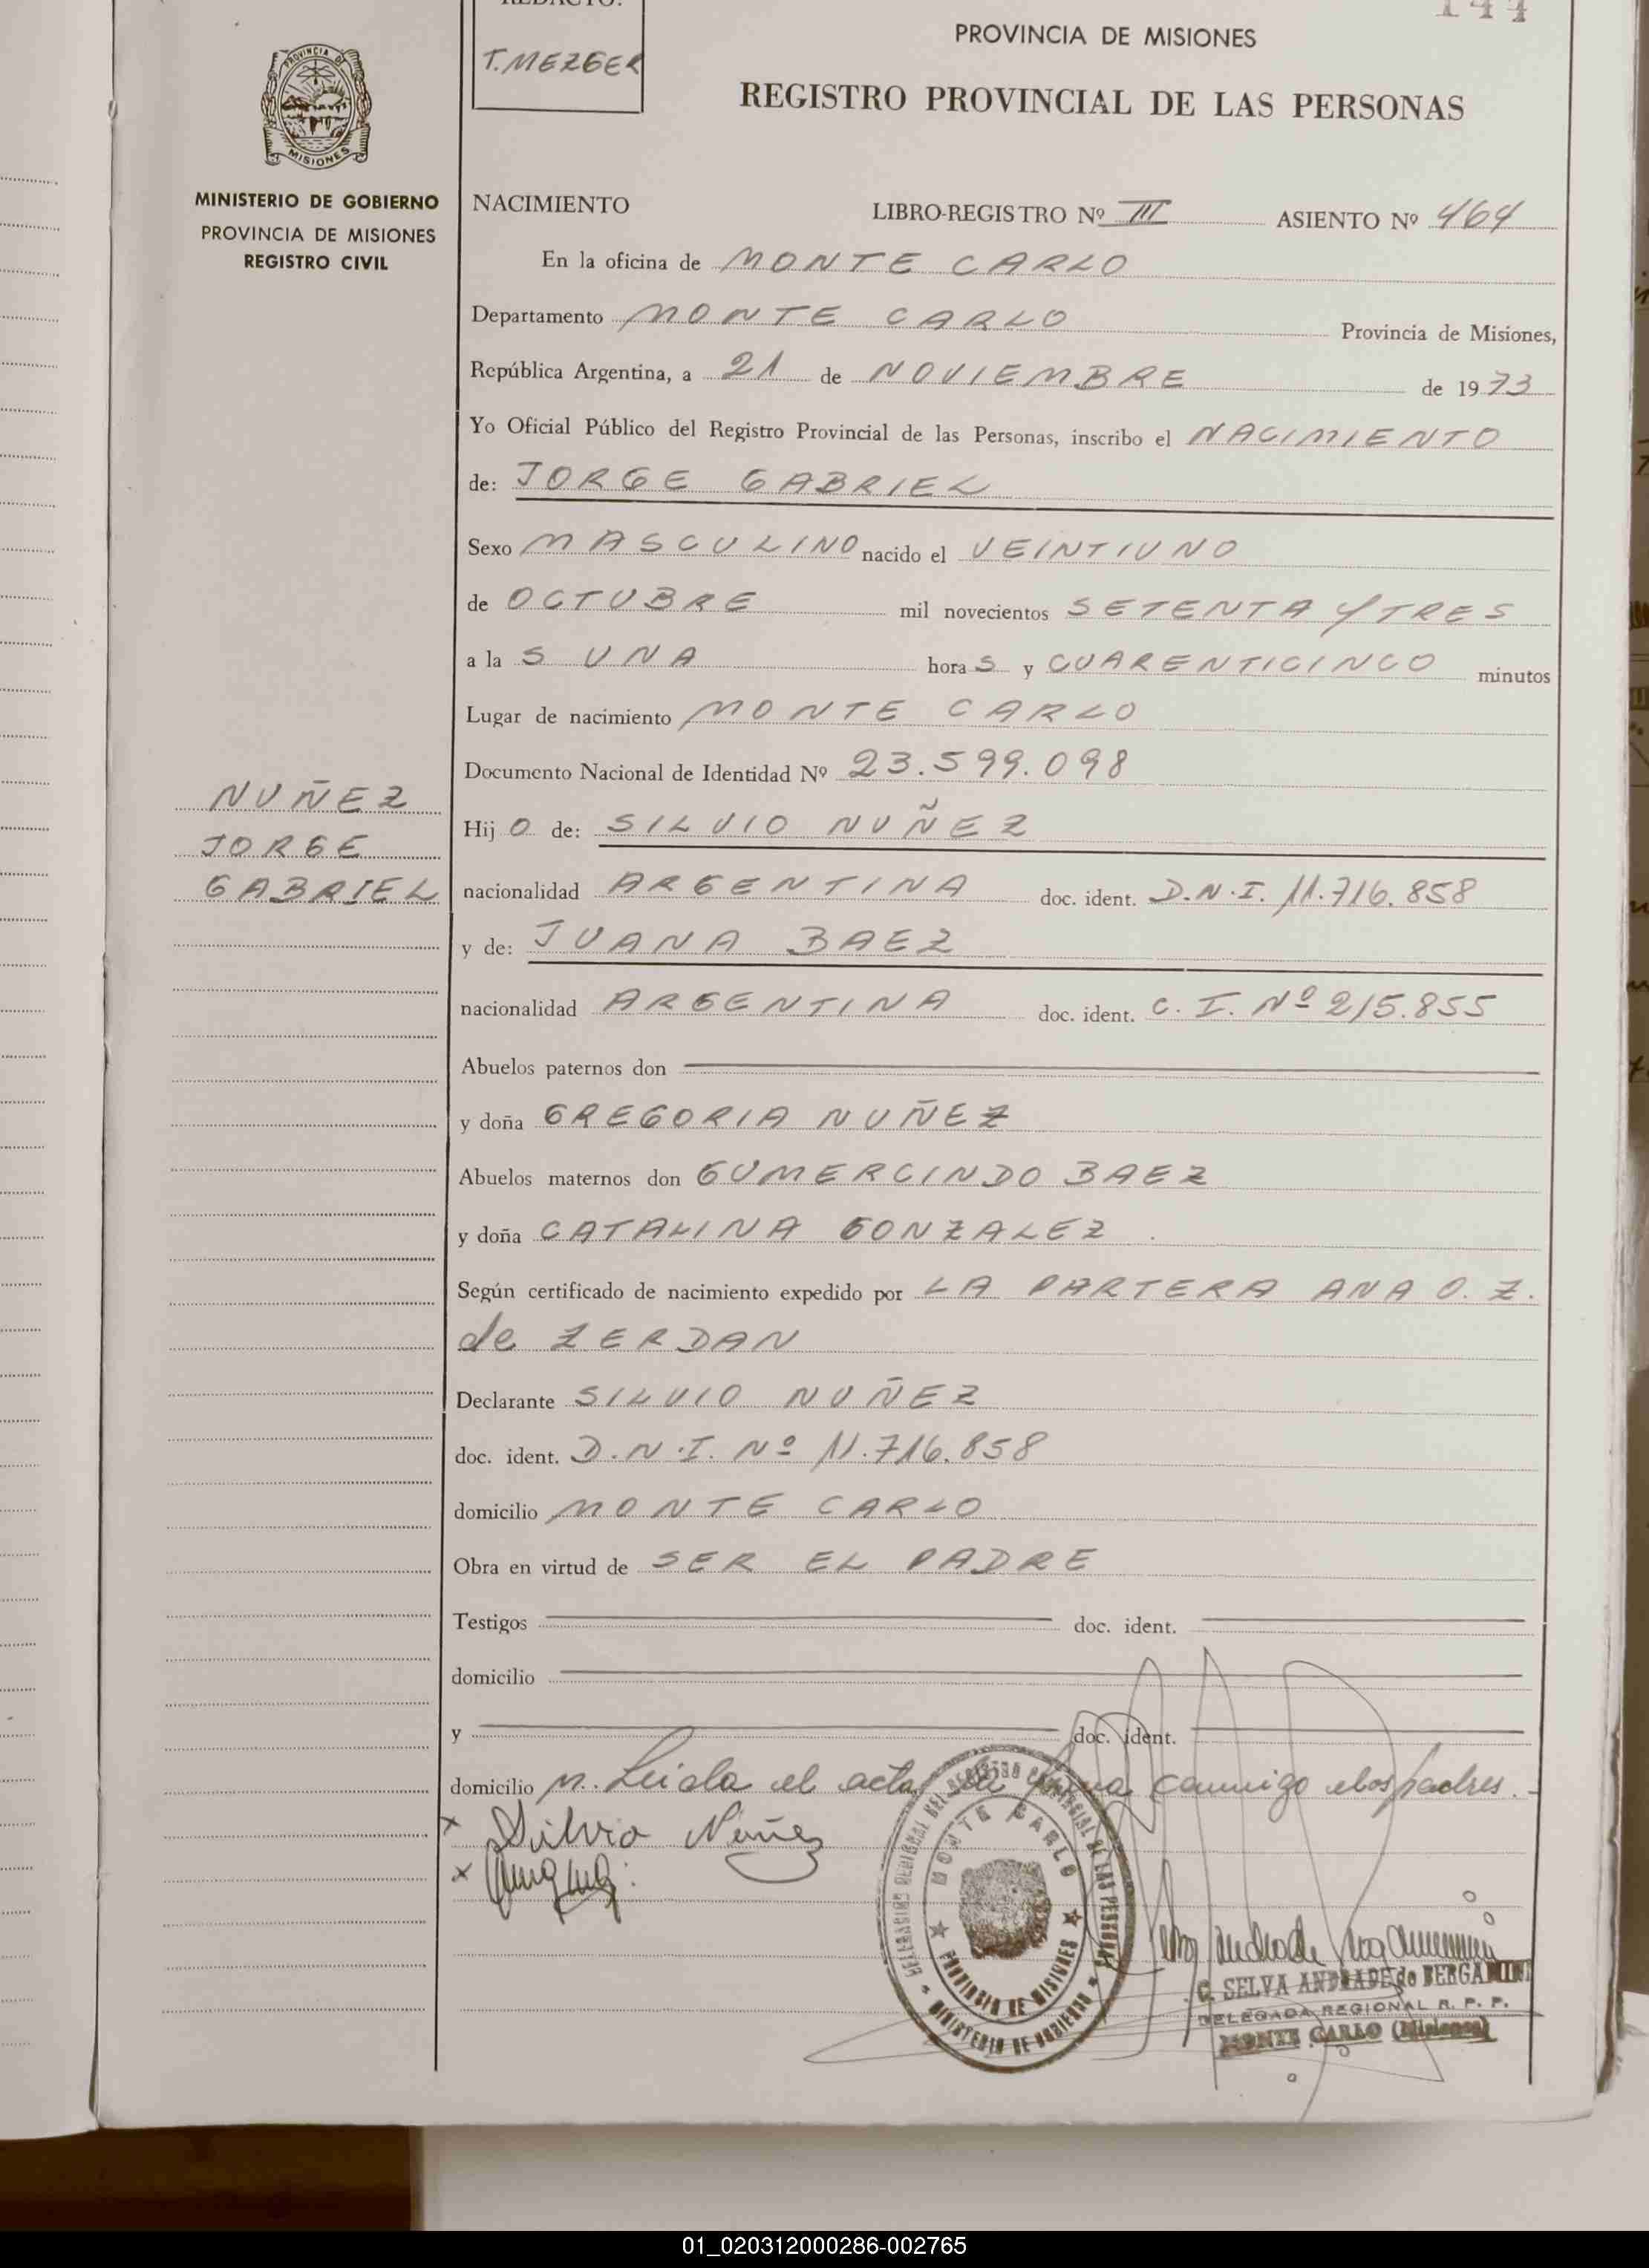 REDACTO:
T. MEZGER
144
PROVINCIA DE MISIONES
REGISTRO PROVINCIAL DE LAS PERSONAS
PROVINCIA DE
MISIONES
MINISTERIO DE GOBIERNO
PROVINCIA DE MISIONES
REGISTRO CIVIL
NACIMIENTO LIBRO-REGISTRO Nº III ASIENTO Nº 464
En la oficina de MONTE CARLO
Departamento MONTE CARLO Provincia de Misiones,
República Argentina, a 21 de NOVIEMBRE de 1973
Yo Oficial Público del Registro Provincial de las Personas, inscribo el NACIMIENTO
de: JORGE GABRIEL
Sexo MASCULINO nacido el VEINTIUNO
de OCTUBRE mil novecientos SETENTA Y TRES
a la S UNA hora S y CUARENTICINCO minutos
Lugar de nacimiento MONTE CARLO
Documento Nacional de Identidad Nº 23.599.098
NUÑEZ
JORGE
GABRIEL
Hij O de: SILVIO NUÑEZ
nacionalidad ARGENTINA doc. ident. D.N.I. 11.716.858
y de: JUANA BAEZ
nacionalidad ARGENTINA doc. ident. C. I. Nº 215.855
Abuelos paternos don
y doña GREGORIA NUÑEZ
Abuelos maternos don GUMERCINDO BAEZ
y doña CATALINA GONZALEZ
Según certificado de nacimiento expedido por LA PARTERA ANA O. Z.
de ZERDAN
Declarante SILVIO NUÑEZ
doc. ident. D.N.I. Nº 11.716.858
domicilio MONTE CARLO
Obra en virtud de SER EL PADRE
Testigos doc. ident.
domicilio
y doc. ident.
domicilio n. Leida el acta la firma conmigo los padres.-
x Silvio Nuñez
x
DELEGACION REGIONAL DEL REGISTRO PROVINCIAL DE LAS PERSONAS
MONTE CARLO
PROVINCIA DE MISIONES
MINISTERIO DE GOBIERNO
C. SELVA ANDRADE de BERGAMINI
DELEGADA REGIONAL R. P. P.
MONTE CARLO (Misiones)
01_020312000286-002765